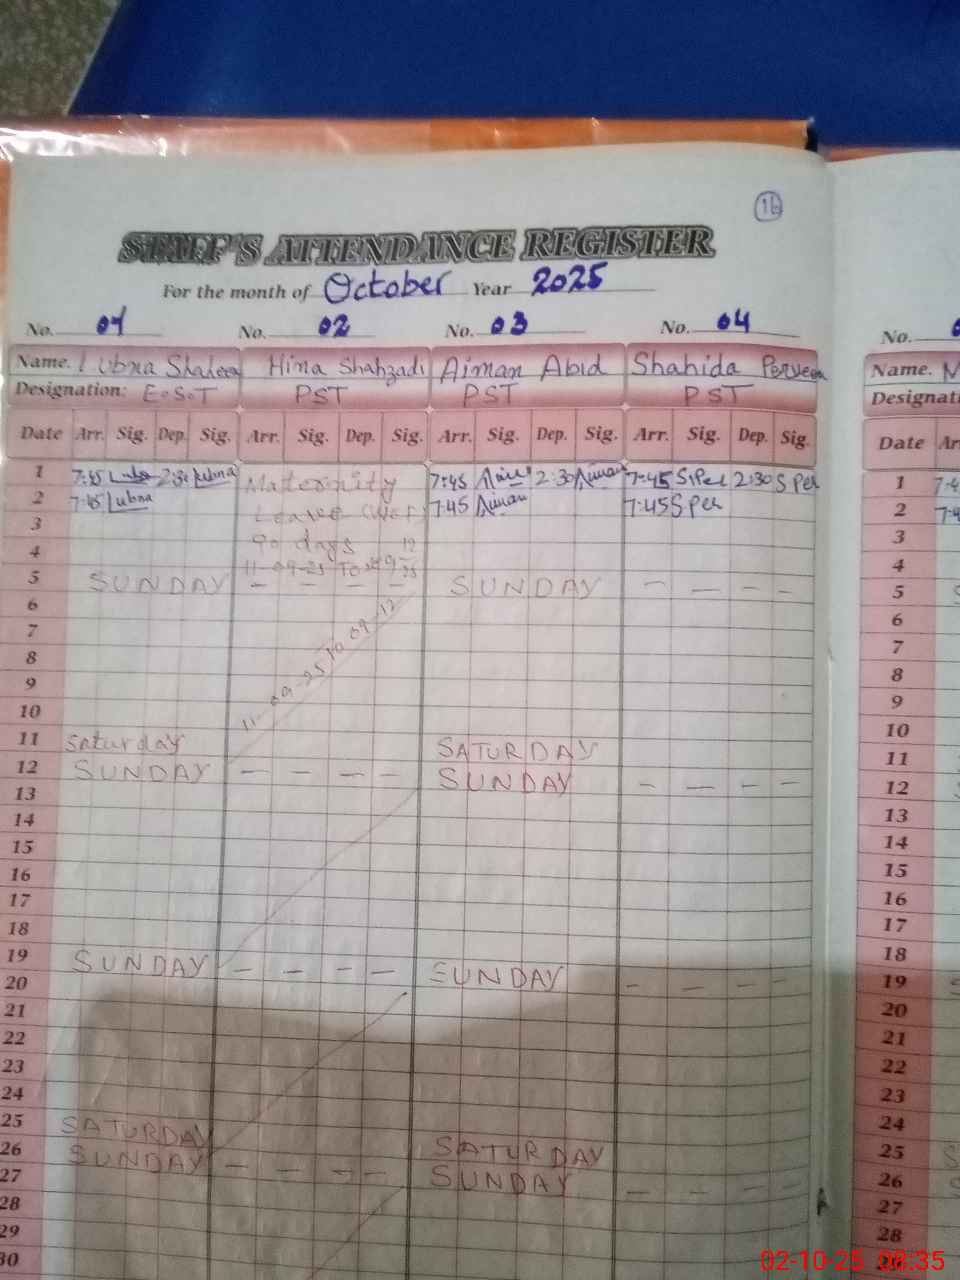 16
STAFF'S ATTENDANCE REGISTER
For the month of October Year 2025
No. 01 No. 02 No. 03 No. 04 No.
Name. Lubna Shaheen Hina Shahzadi Aiman Abid Shahida Perveen Name.
Designation: E.S.T PST PST PST
Date Arr. Sig. Dep. Sig. Arr. Sig. Dep. Sig. Arr. Sig. Dep. Sig. Arr. Sig. Dep. Sig. Date
1 7:45 Lubna 2:30 Lubna Maternity 7:45 Aiman 2:30 Aiman 7:45 S.Per 2:30 S Per 1
2 7:45 Lubna Leave 7:45 Aiman 7:45 S Per 2
3 3
4 90 days 4
5 SUNDAY 11-09-25 To SUNDAY — — — — 5
6 6
7 11-09-25 To 09-12 7
8 8
9 9
10 10
11 Saturday SATURDAY 11
12 SUNDAY — — — — SUNDAY — — — — 12
13 13
14 14
15 15
16 16
17 17
18 18
19 SUNDAY — — — — SUNDAY — — — — 19
20 20
21 21
22 22
23 23
24 24
25 SATURDAY SATURDAY 25
26 SUNDAY — — — — SUNDAY — — — — 26
27 27
28 28
29
30
02-10-25 08:35